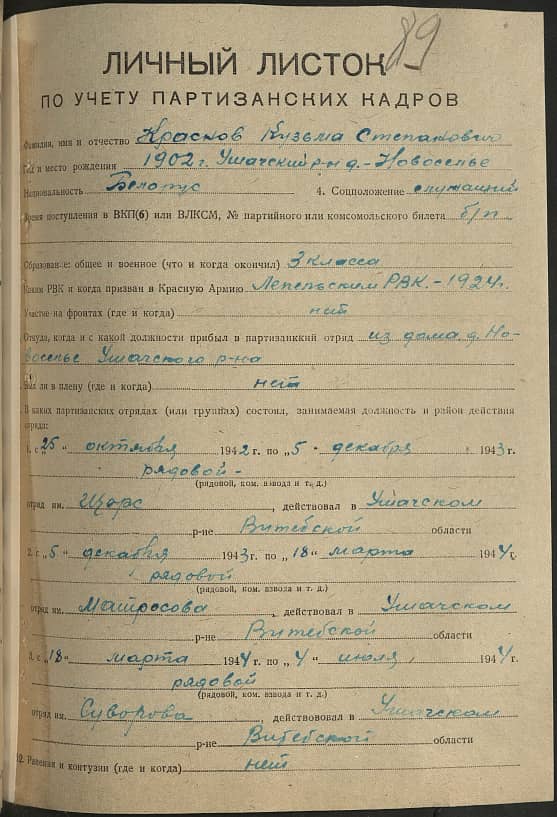 89
ЛИЧНЫЙ ЛИСТОК
ПО УЧЕТУ ПАРТИЗАНСКИХ КАДРОВ
Фамилия, имя и отчество Краснов Кузьма Степанович
Год и место рождения 1902 г. Ушачский р-н д.-Новоселье
Национальность Белорус 4. Соцположение служащий
Время поступления в ВКП(б) или ВЛКСМ, № партийного или комсомольского билета б/п
Образование: общее и военное (что и когда окончил) 3 класса
Каким РВК и когда призван в Красную Армию Лепельским РВК.-1924 г.
Участие на фронтах (где и когда) нет
Откуда, когда и с какой должности прибыл в партизанккий отряд из дома д. Но-
воселье Ушачского р-на
Был ли в плену (где и когда) нет
В каких партизанских отрядах (или группах) состоил, занимаемая должность и район действия
отряда:
1. с „25" октября 1942 г. по „5" декабря 1943 г.
рядовой-
(рядовой, ком. взвода и т. д.)
отряд им. Щорс , действовал в Ушачском
р-не Витебской области
2. с „5" декабря 1943 г. по „18" марта 1944 г.
рядовой
(рядовой, ком. взвода и т. д.)
отряд им. Матросова , действовал в Ушачском
р-не Витебской области
3. с „18" марта 1944 г. по „4" июля 1944 г.
рядовой
(рядовой, ком. взвода и т. д.)
отряд им. Суворова , действовал в Ушачском
р-не Витебской области
12. Ранения и контузии (где и когда) нет